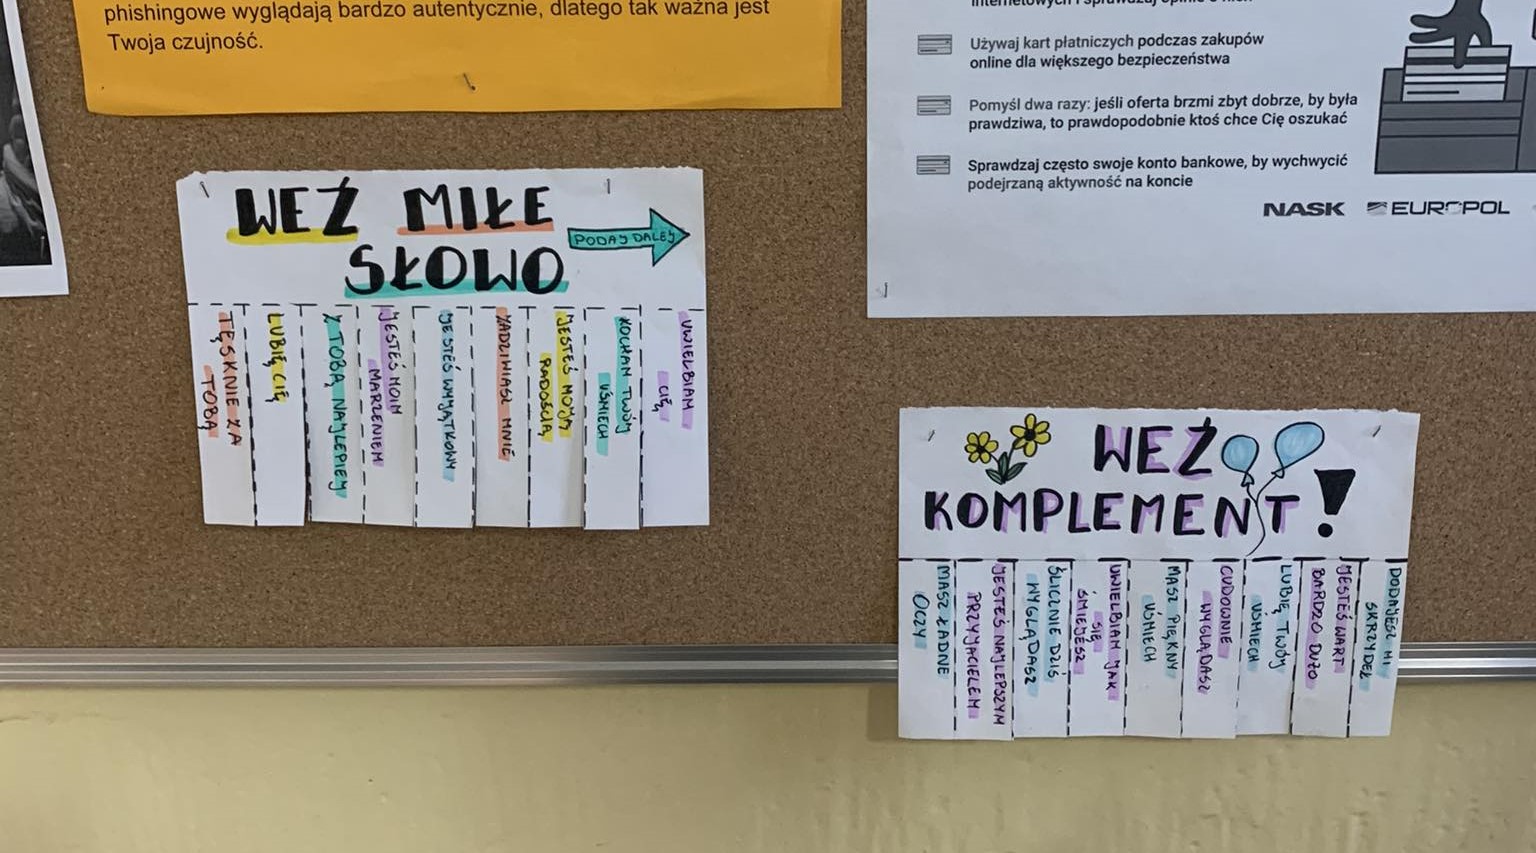 phishingowe wyglądają bardzo autentycznie, dlatego tak ważna jest
Twoja czujność.
Używaj kart płatniczych podczas zakupów
online dla większego bezpieczeństwa
Pomyśl dwa razy: jeśli oferta brzmi zbyt dobrze, by była
prawdziwa, to prawdopodobnie ktoś chce Cię oszukać
Sprawdzaj często swoje konto bankowe, by wychwycić
podejrzaną aktywność na koncie
NASK EUROPOL
WEŹ MIŁE
SŁOWO
PODAJ DALEJ
TĘSKNIE ZA
TOBĄ
LUBIĘ CIĘ
Z TOBĄ NAJLEPIEJ
JESTEŚ MOIM
MARZENIEM
JESTEŚ WYJĄTKOWY
ZADZIWIASZ MNIE
JESTEŚ MOJĄ
RADOŚCIĄ
KOCHAM TWÓJ
UŚMIECH
UWIELBIAM
CIĘ
WEŹ
KOMPLEMENT!
MASZ ŁADNE
OCZY
JESTEŚ NAJLEPSZYM
PRZYJACIELEM
ŚLICZNIE DZIŚ
WYGLĄDASZ
UWIELBIAM JAK
SIĘ
ŚMIEJESZ
MASZ PIĘKNY
UŚMIECH
CUDOWNIE
WYGLĄDASZ
LUBIĘ TWÓJ
UŚMIECH
JESTEŚ WART
BARDZO DUŻO
DODAJESZ MI
SKRZYDEŁ